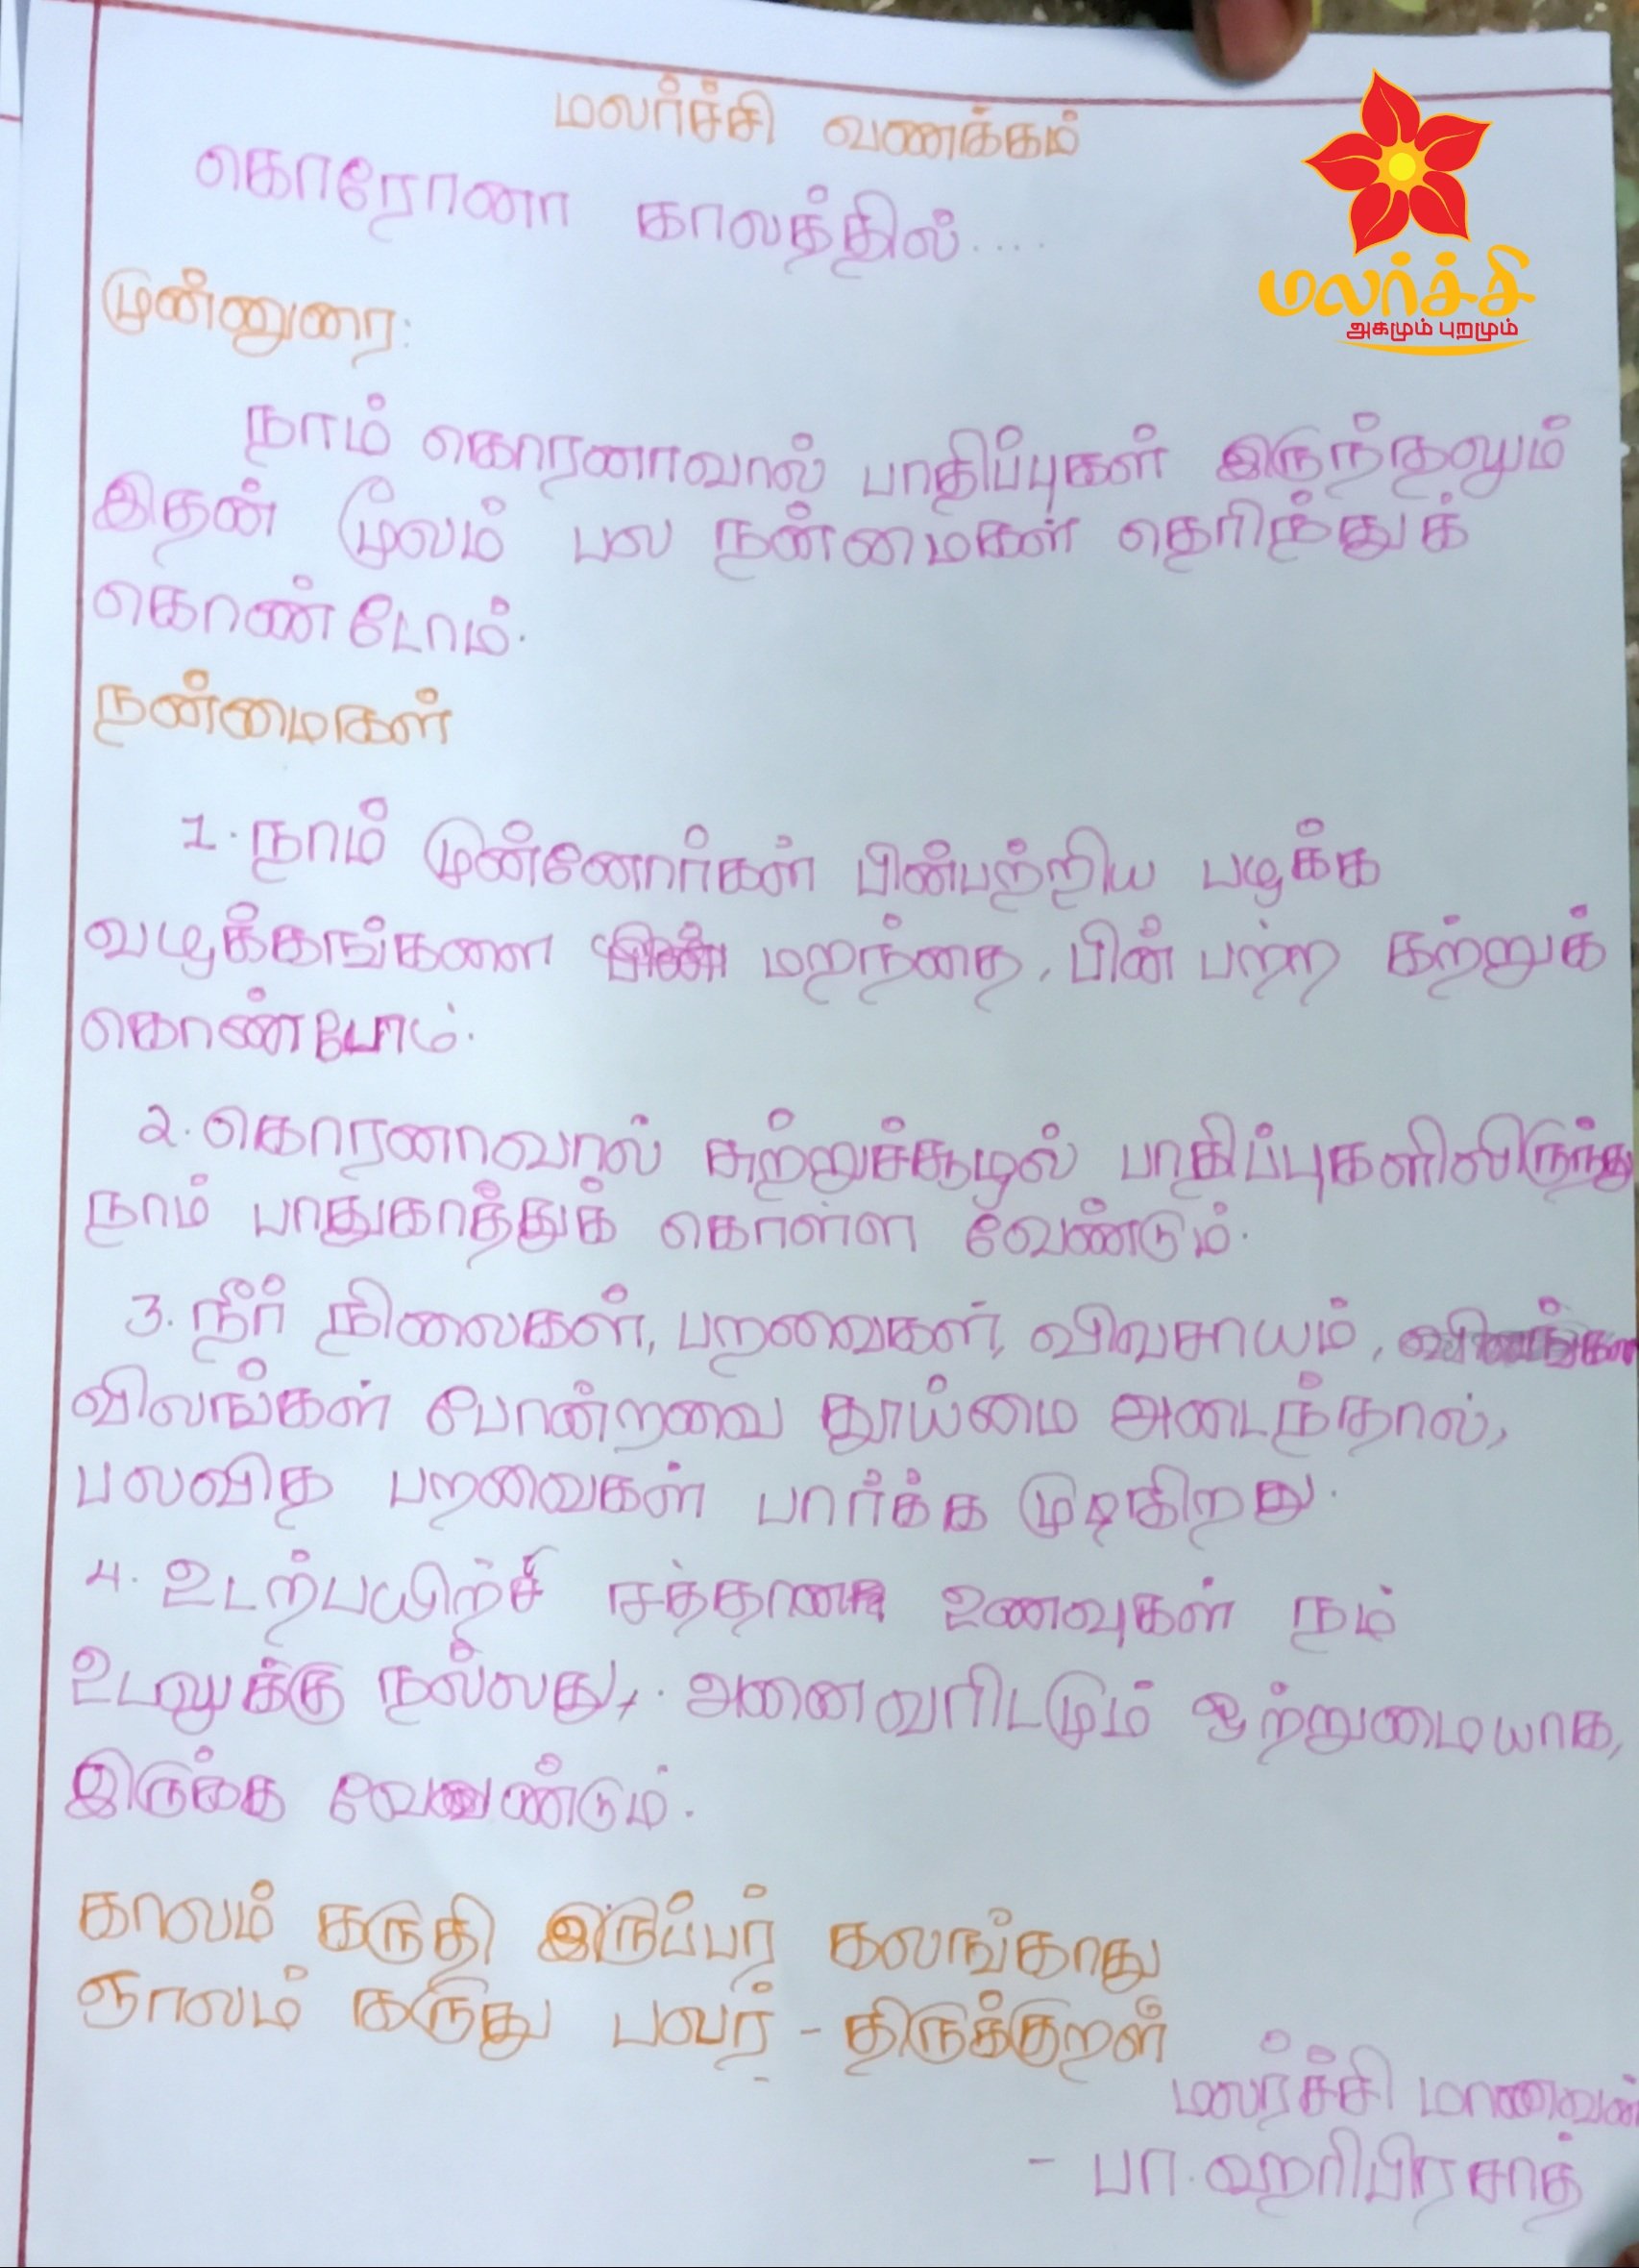 மலர்ச்சி வணக்கம்
கொரோனா காலத்தில்....
மலர்ச்சி
அகமும் புறமும்
முன்னுரை:
நாம் கொரனாவால் பாதிப்புகள் இருந்தலும்
இதன் மூலம் பல நன்மைகள் தெரிந்துக்
கொண்டோம்.
நன்மைகள்
1. நாம் முன்னோர்கள் பின்பற்றிய பழக்க
வழக்கங்களை மறந்தை, பின் பற்ற கற்றுக்
கொண்போம்.
2. கொரனாவால் சுற்றுச்சூழல் பாதிப்புகளிலிருந்து
நாம் பாதுகாத்துக் கொள்ள வேண்டும்.
3. நீர் நிலைகள், பறவைகள், விவசாயம்,
விலங்கள் போன்றவை தூய்மை அடைந்தால்,
பலவித பறவைகள் பார்க்க முடிகிறது.
4. உடற்பயிற்சி சத்தான உணவுகள் நம்
உடலுக்கு நல்லது,. அனைவரிடமும் ஒற்றுமையாக,
இருக்க வேண்டும்.
காலம் கருதி இருப்பர் கலங்காது
ஞாலம் கருது பவர் - திருக்குறள்
மலர்ச்சி மாணவன்
- பா. ஹரிபிரசாத்